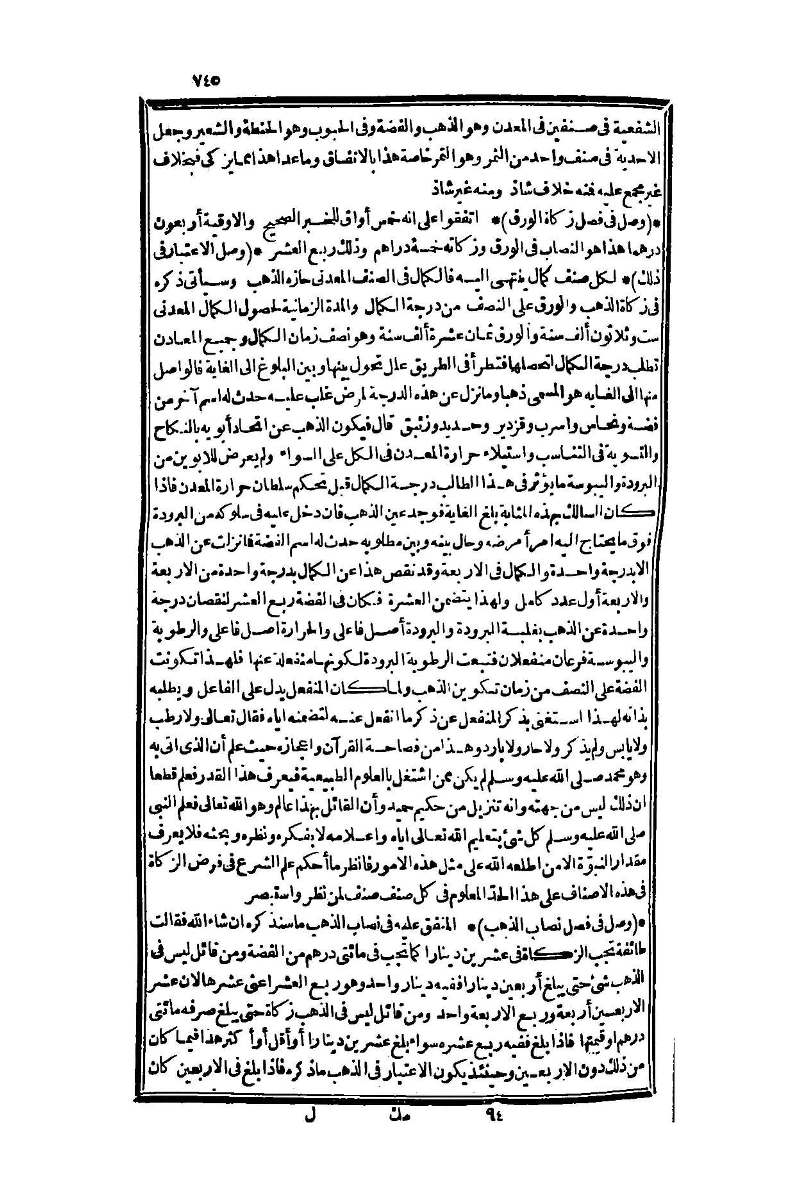 ٧٤٥
الشفعية فى صنفين فى المعدن وهو الذهب والفضة وفى الحبوب وهو الحنطة والشعير وجعل
الاحدية فى صنف واحد من الثمر وهو التمر خاصة هذا بالاتفاق وماعدا هذا مما يزكى فبخلاف
غير مجمع عليه فمنه خلاف شاذ ومنه غير شاذ
*(وصل فى فصل زكاة الورق)* اتفقوا على انه خمس أواق للخبر الصحيح والاوقية أربعون
درهما هذا هو النصاب فى الورق وزكاته خمسة دراهم وذلك ربع العشر *(وصل الاعتبار فى
ذلك)* لكل صنف كمال ينتهى اليه فالكمال فى الصنف المعدنى حازه الذهب وسيأتى ذكره
فى زكاة الذهب والورق على النصف من درجة الكمال والمدة الزمانية لحصول الكمال المعدنى
ست وثلاثون ألف سنة والورق ثمان عشرة ألف سنة وهو نصف زمان الكمال وجميع المعادن
تطلب درجة الكمال لتحصلها فتطرأ فى الطريق علل تحول بينها وبين البلوغ الى الغاية فالواصل
منها الى الغايه هو المسمى ذهبا وما نزل عن هذه الدرجة لمرض غلب عليه حدث له اسم آخر من
فضة ونحاس واسرب وقزدير وحديد وزئبق قال فيكون الذهب عن اتحاد أبويه بالنكاح
والتسوية فى التناسب واستيلاء حرارة المعدن فى الكل على السواء ولم يعرض للابوين من
البرودة واليبوسة ما يؤثر فى هذا الطالب درجة الكمال قبل تحكم سلطان حرارة المعدن فاذا
كان السالك بهذه المثابة بلغ الغاية فوجد عين الذهب فان دخل عليه فى سلوكه من البرودة
فوق ما يحتاج اليه امرأ مرضه وحال بينه وبين مطلوبه حدث له اسم الفضة فانزلت عن الذهب
الا بدرجة واحدة والكمال فى الاربعة وقد نقص هذا عن الكمال بدرجة واحدة من الاربعة
والاربعة أول عدد كامل ولهذا يتضمن العشرة فكان فى الفضة ربع العشر لنقصان درجة
واحدة عن الذهب بغلبة البرودة والبرودة أصل فاعلى والحرارة اصل فاعلى والرطوبة
واليبوسة فرعان منفعلان فتبعت الرطوبة البرودة لكونها منفعلة عنها فلهذا تكونت
الفضة على النصف من زمان تكوين الذهب ولما كان المنفعل يدل على الفاعل ويطلبه
بذاته لهذا استغنى بذكر المنفعل عن ذكر ما انفعل عنه لتضمنه اياه فقال تعالى ولا رطب
ولا يابس ولم يذكر ولا حار ولا بارد وهذا من فصاحة القرآن واعجازه حيث علم أن الذى اتى به
وهو محمد صلى الله عليه وسلم لم يكن ممن اشتغل بالعلوم الطبيعية فيعرف هذا القدر فعلم قطعا
ان ذلك ليس من جهته وانه تنزيل من حكيم حميد وأن القائل بهذا عالم وهو الله تعالى فعلم النبى
صلى الله عليه وسلم كل شئ بتعليم الله تعالى اياه واعلامه لا بفكره ونظره وبحثه فلا يعرف
مقدار النبوّة الا من اطلعه الله على مثل هذه الامور فانظر ما أحكم علم الشرع فى فرض الزكاة
فى هذه الاصناف على هذا الحد المعلوم فى كل صنف صنف لمن نظر واستبصر
*(وصل فى فصل نصاب الذهب)* المتفق عليه فى نصاب الذهب ماسنذكره ان شاء الله فقالت
طائفة تجب الزكاة فى عشرين دينارا كما تجب فى مائتى درهم من الفضة ومن قائل ليس فى
الذهب شئ حتى يبلغ أربعين دينارا ففيه دينار واحد وهو ربع العشر اعنى عشرها لان عشر
الاربعين أربعة وربع الاربعة واحد ومن قائل ليس فى الذهب زكاة حتى يبلغ صرفه مائتى
درهم او قيمتها فاذا بلغ ففيه ربع عشره سواء بلغ عشرين دينارا أو أقل أو أكثر هذا فيما كان
من ذلك دون الاربعين وحينئذ يكون الاعتبار فى الذهب ماذكره فاذا بلغ فى الاربعين كان
٩٤ مك ل